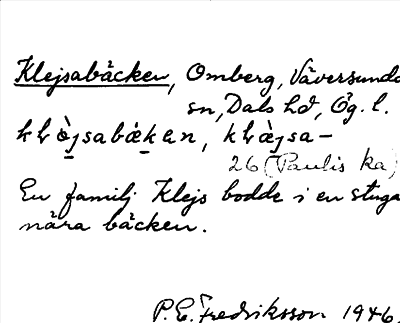 Klejsabäcken, Omberg, Väversunda
sn, Dals hd, Ög. l.
klæ̀jsabækan, klæ̀jsa-
26 (Paulis ka)
En familj Klejs bodde i en stuga
nära bäcken.
P.E. Fredriksson 1946.